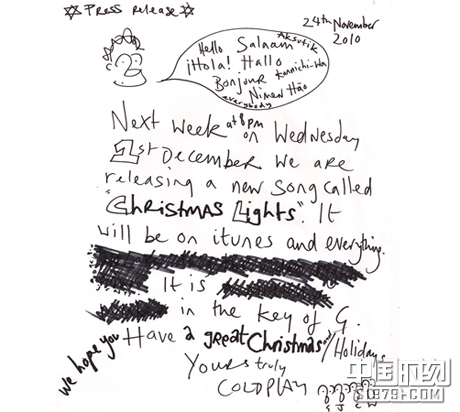 ✡ Press release ✡
24th November
2010
Hello Salaam Aksutik
¡Hola! Hallo
Bonjour Konnichi-wa
Nimen Hao
everybody
Next week at 8pm on Wednesday
1st December we are
releasing a new song called
"Christmas Lights". It
will be on itunes and everything.
It is
in the key of G.
we hope you Have a great Christmas and/Holidays
Yours truly
COLDPLAY
中国时刻
S1979.COM